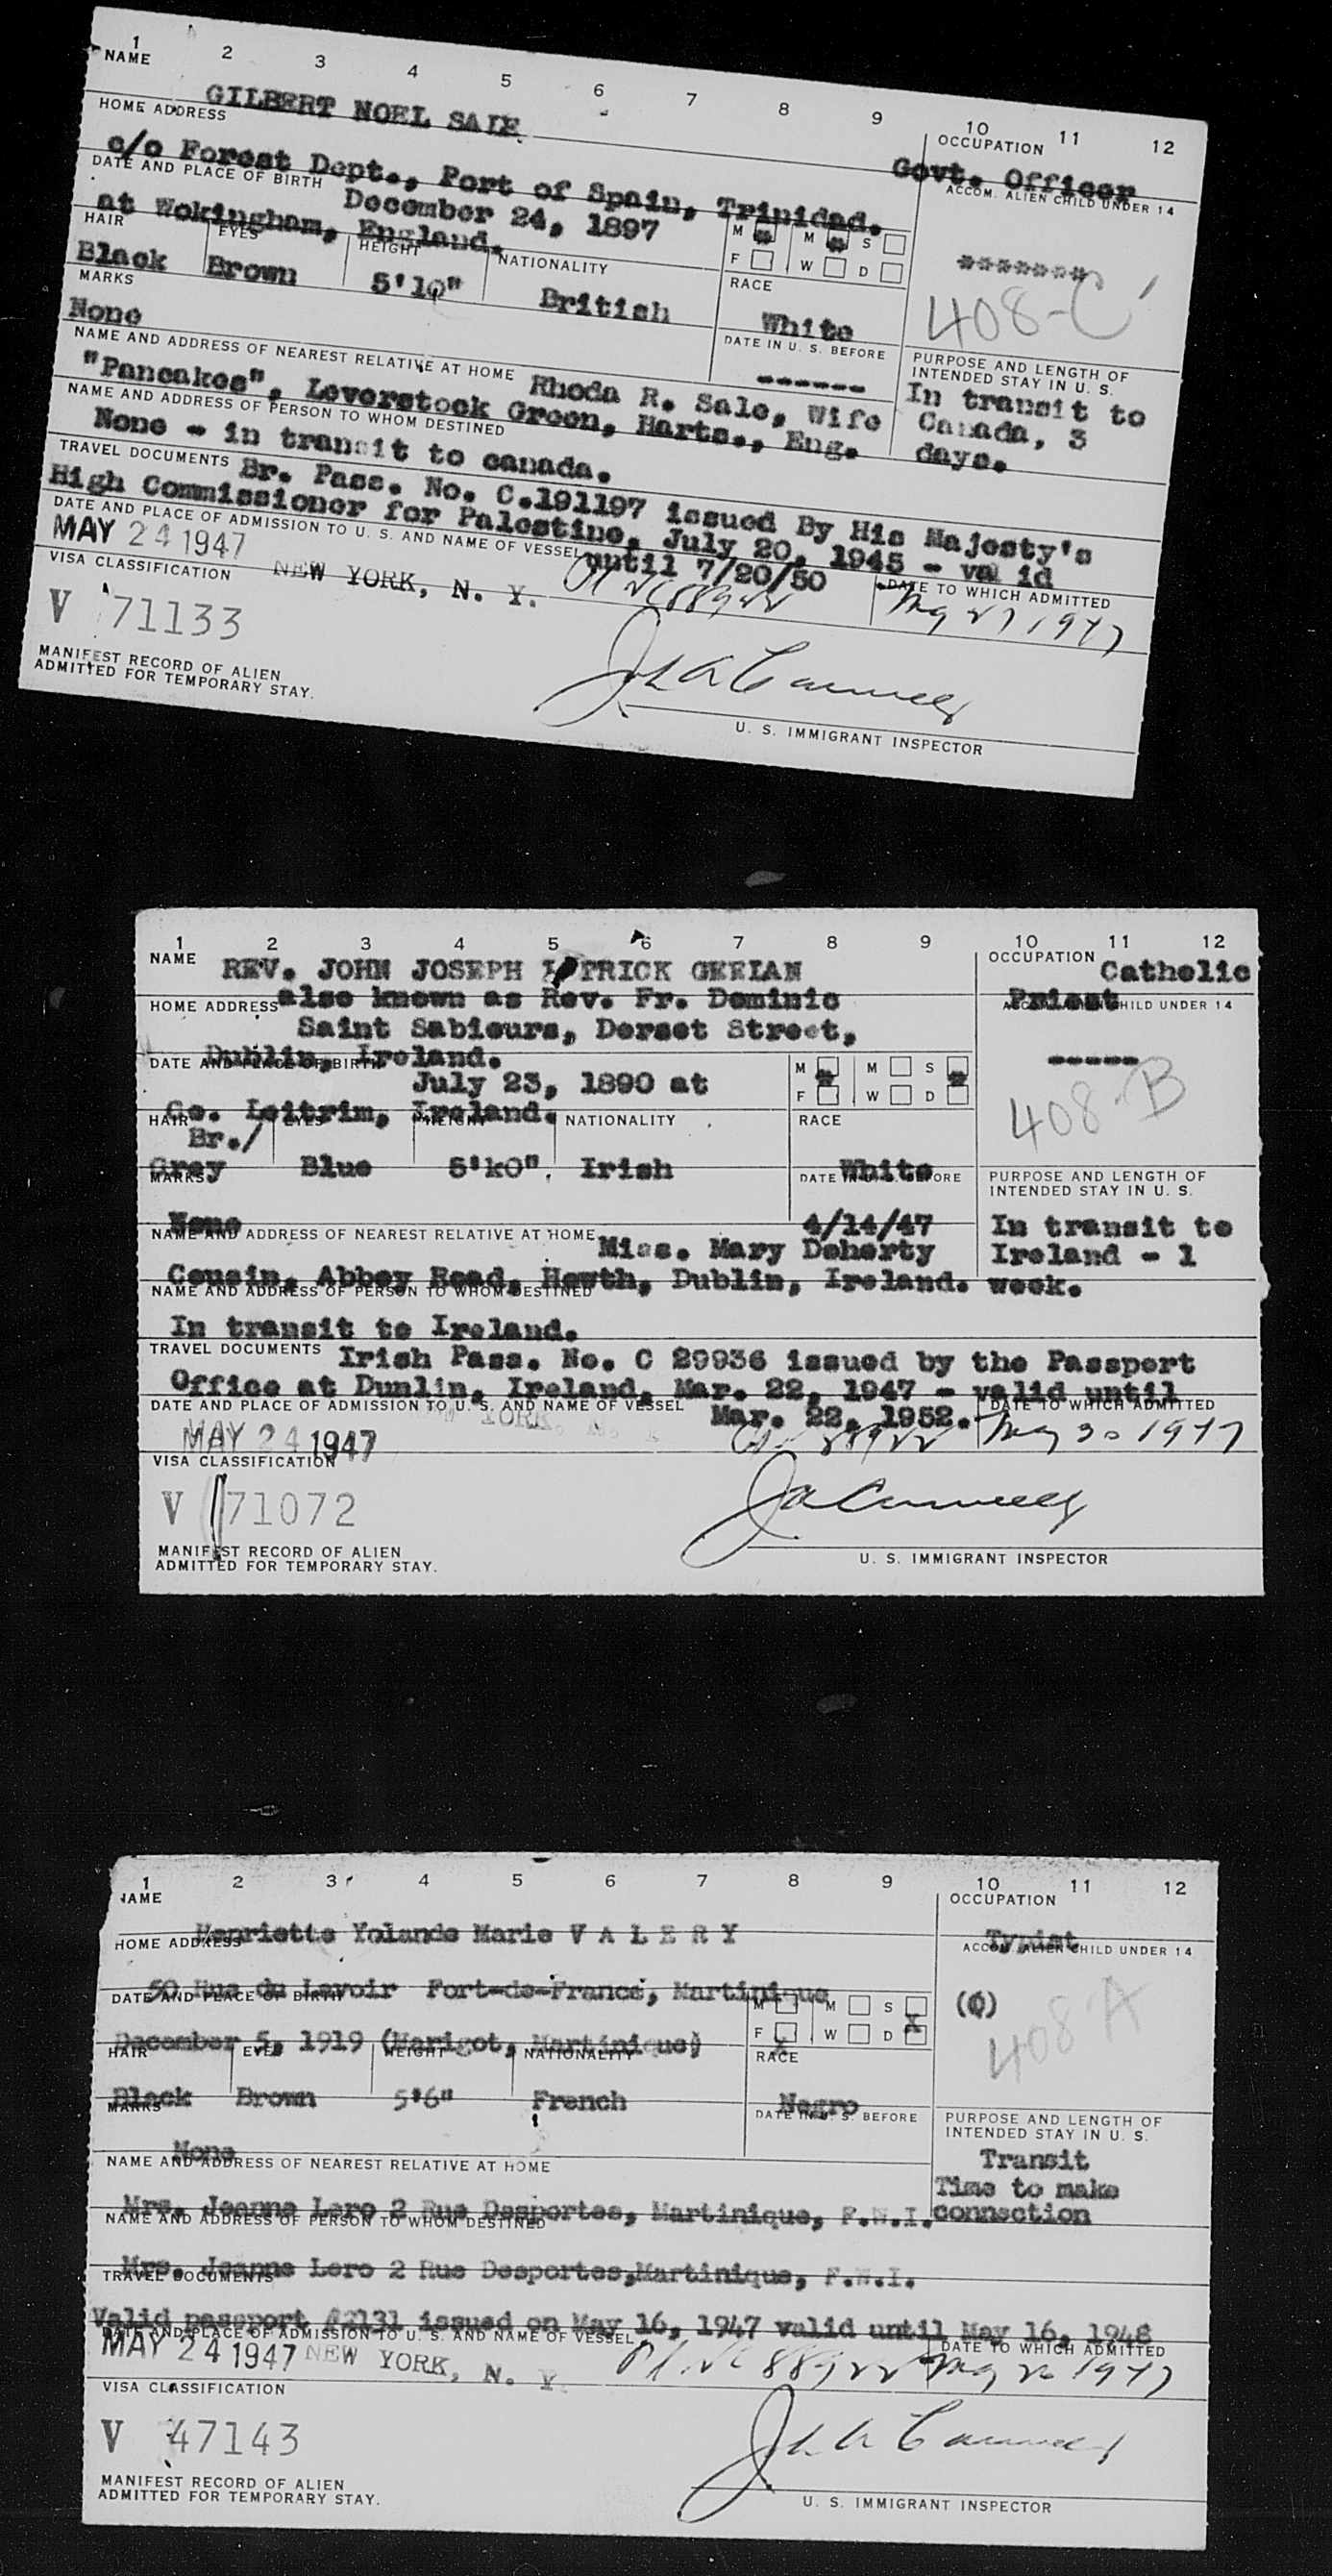 1 2 3 4 5 6 7 8 9 10 11 12
NAME
GILBERT NOEL SALE
OCCUPATION
Govt. Officer
HOME ADDRESS
c/o Forest Dept., Port of Spain, Trinidad.
ACCOM. ALIEN CHILD UNDER 14
*******
408-C
DATE AND PLACE OF BIRTH
December 24, 1897
at Wokingham, England.
M M S
F W D
HAIR EYES HEIGHT NATIONALITY RACE
Black Brown 5'10" British White
MARKS
None
DATE IN U. S. BEFORE
------
PURPOSE AND LENGTH OF
INTENDED STAY IN U. S.
In transit to
Canada, 3
days.
NAME AND ADDRESS OF NEAREST RELATIVE AT HOME Rhoda R. Sale, Wife
"Pancakes", Leverstock Green, Harts., Eng.
NAME AND ADDRESS OF PERSON TO WHOM DESTINED
None - in transit to canada.
TRAVEL DOCUMENTS Br. Pass. No. C.191197 issued By His Majesty's
High Commissioner for Palestine, July 20, 1945 - va id
until 7/20/50
DATE AND PLACE OF ADMISSION TO U. S. AND NAME OF VESSEL
MAY 24 1947 NEW YORK, N. Y. 88922
DATE TO WHICH ADMITTED
May 27 1947
VISA CLASSIFICATION
V 71133
MANIFEST RECORD OF ALIEN
ADMITTED FOR TEMPORARY STAY.
U. S. IMMIGRANT INSPECTOR
1 2 3 4 5 6 7 8 9 10 11 12
NAME
REV. JOHN JOSEPH PATRICK GEEIAN
also known as Rev. Fr. Dominic
OCCUPATION
Catholic
Priest
HOME ADDRESS
Saint Sabiours, Dorset Street,
Dublin, Ireland.
ACCOM. ALIEN CHILD UNDER 14
-----
408-B
DATE AND PLACE OF BIRTH
July 23, 1890 at
Co. Leitrim, Ireland.
M M S
F W D
HAIR EYES HEIGHT NATIONALITY RACE
Br./
Grey Blue 5'k0". Irish White
MARKS
None
DATE IN U. S. BEFORE
4/14/47
PURPOSE AND LENGTH OF
INTENDED STAY IN U. S.
In transit to
Ireland - 1
week.
NAME AND ADDRESS OF NEAREST RELATIVE AT HOME Miss. Mary Doherty
Cousin, Abbey Road, Howth, Dublin, Ireland.
NAME AND ADDRESS OF PERSON TO WHOM DESTINED
In transit to Ireland.
TRAVEL DOCUMENTS Irish Pass. No. C 29936 issued by the Passport
Office at Dunlin, Ireland, Mar. 22, 1947 - valid until
Mar. 22, 1952.
DATE AND PLACE OF ADMISSION TO U. S. AND NAME OF VESSEL
YORK,
MAY 24 1947 88922
DATE TO WHICH ADMITTED
May 30 1947
VISA CLASSIFICATION
V 71072
MANIFEST RECORD OF ALIEN
ADMITTED FOR TEMPORARY STAY.
U. S. IMMIGRANT INSPECTOR
1 2 3 4 5 6 7 8 9 10 11 12
NAME
Henriette Yolande Marie V A L E R Y
OCCUPATION
Typist
HOME ADDRESS
50 Rue du Lavoir Fort-de-France, Martinique
ACCOM. ALIEN CHILD UNDER 14
(0)
408 A
DATE AND PLACE OF BIRTH
December 5, 1919 (Marigot, Martinique)
M M S
F W D
HAIR EYES HEIGHT NATIONALITY RACE
Black Brown 5'6" French Negro
MARKS
None
DATE IN U. S. BEFORE
PURPOSE AND LENGTH OF
INTENDED STAY IN U. S.
Transit
Time to make
connection
NAME AND ADDRESS OF NEAREST RELATIVE AT HOME
Mrs. Jeanne Lero 2 Rue Desportes, Martinique, F.W.I.
NAME AND ADDRESS OF PERSON TO WHOM DESTINED
Mrs. Jeanne Lero 2 Rue Desportes,Martinique, F.W.I.
TRAVEL DOCUMENTS
Valid passport #2131 issued on May 16, 1947 valid until May 16, 1948
DATE AND PLACE OF ADMISSION TO U. S. AND NAME OF VESSEL
MAY 24 1947 NEW YORK, N. Y. 88922
DATE TO WHICH ADMITTED
May 26 1947
VISA CLASSIFICATION
V 47143
MANIFEST RECORD OF ALIEN
ADMITTED FOR TEMPORARY STAY.
U. S. IMMIGRANT INSPECTOR